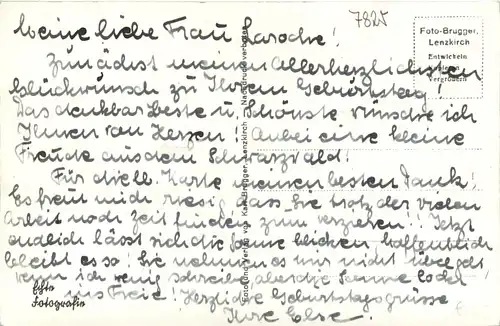 7825
Meine liebe Frau Laroche!
Zunächst meinen Allerherzlichsten
Glückwunsch zu Ihrem Geburtstag!
Das denkbar Beste u. Schönste wünsche ich
Ihnen von Herzen! Anbei eine kleine
Freude aus dem Schwarzwald!
Für die Karte meinen besten Dank!
Es freut mich riesig dass Sie trotz der vielen
Arbeit noch Zeit finden zum verreisen!! Jetzt
endlich lässt sich die Sonne blicken hoffentlich
bleibt es so! Sie nehmen es mir nicht übel
wenn ich wenig schreibe, aber die Sonne lockt
ins Freie! Herzliche Geburtstagsgrüsse
Ihre Else!
Foto-Brugger,
Lenzkirch
Entwickeln
Kopieren
Vergrößern
Foto und Verlag von Karl Brugger, Lenzkirch — Nachdruck verboten
Echte
Fotografie